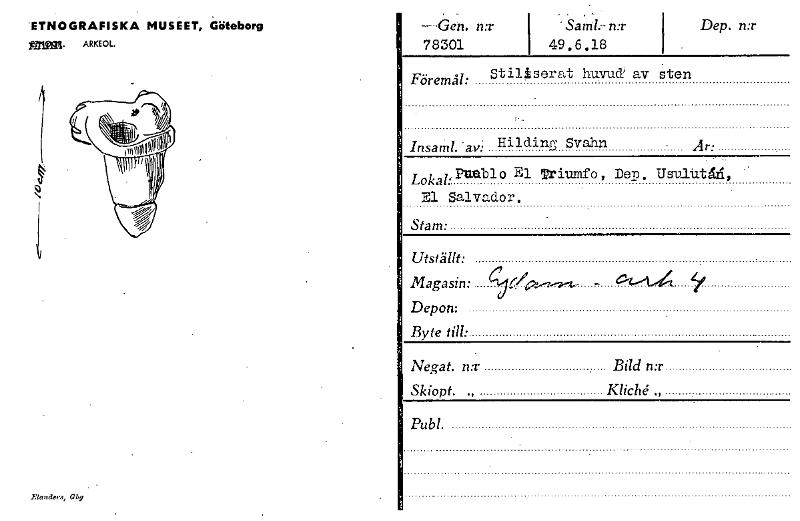 ETNOGRAFISKA MUSEET, Göteborg
ARKEOL.
10cm
Elanders, Gbg
Gen. n:r Saml. n:r Dep. n:r
78301 49.6.18
Föremål: Stiliserat huvud av sten
Insaml. av: Hilding Svahn År:
Lokal: Pueblo El Triumfo, Dep. Usulután,
El Salvador.
Stam:
Utställt:
Magasin: Sydam - ark 4
Depon:
Byte till:
Negat. n:r Bild n:r
Skiopt. „ Kliché „
Publ.